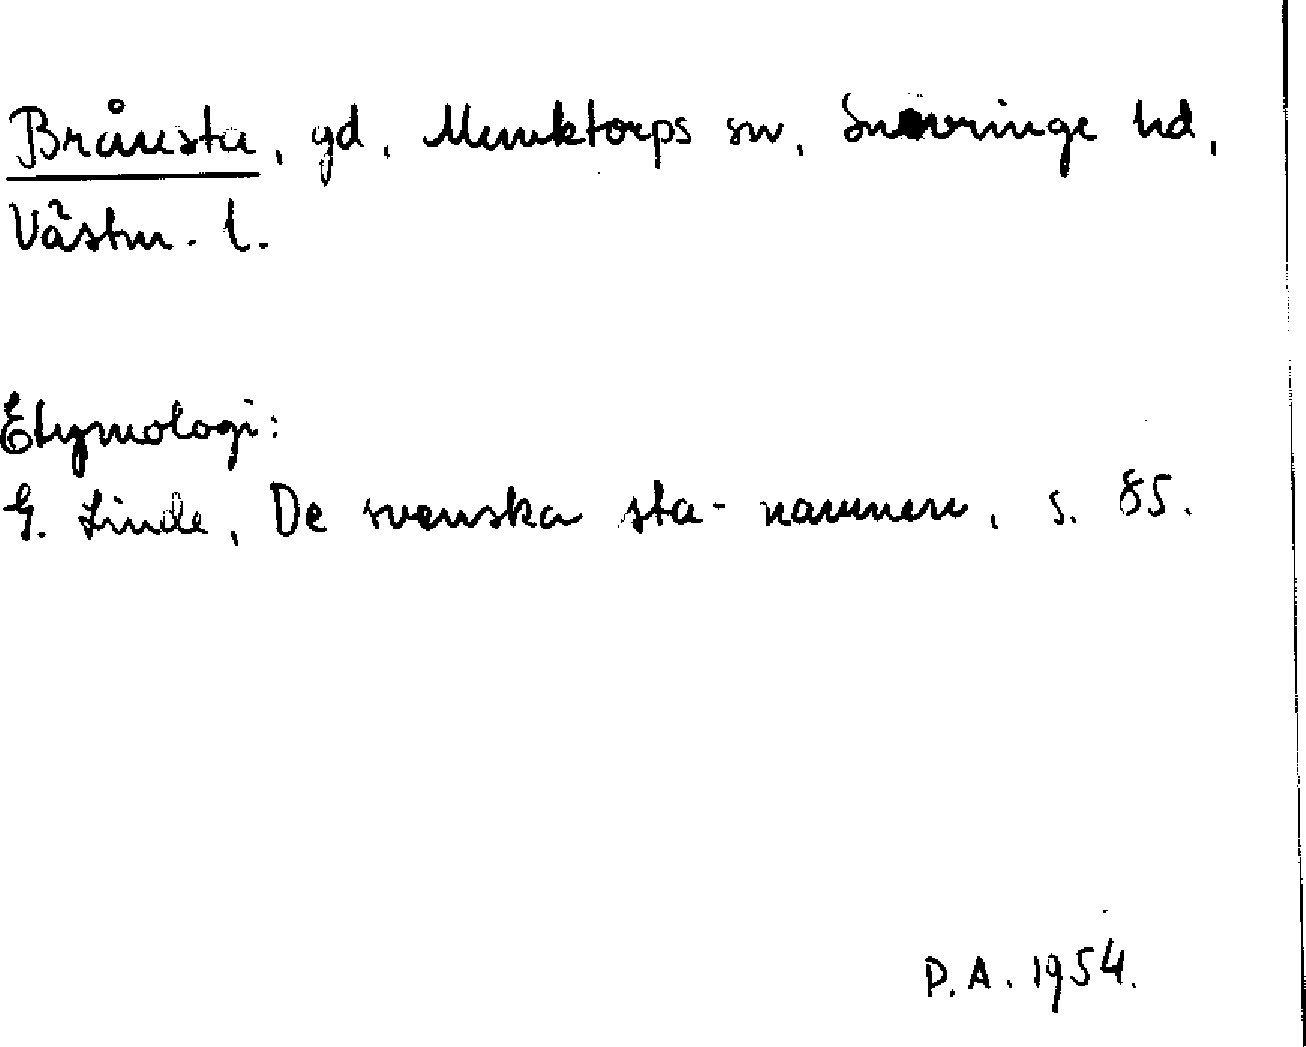 Brånsta, gd, Munktorps sn, Snevringe hd,
Västm. l.
Etymologi:
G. Linde, De svenska sta-namnen, s. 85.
P.A. 1954.